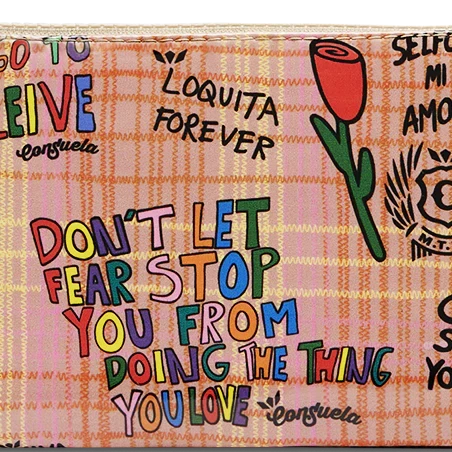 GO TO
LEIVE
Consuela
LOQUITA
FOREVER
SELFC
MI
AMO
C
M.T.
DON'T LET
FEAR STOP
YOU FROM
DOING THE THING
YOU LOVE
Consuela
S
YO